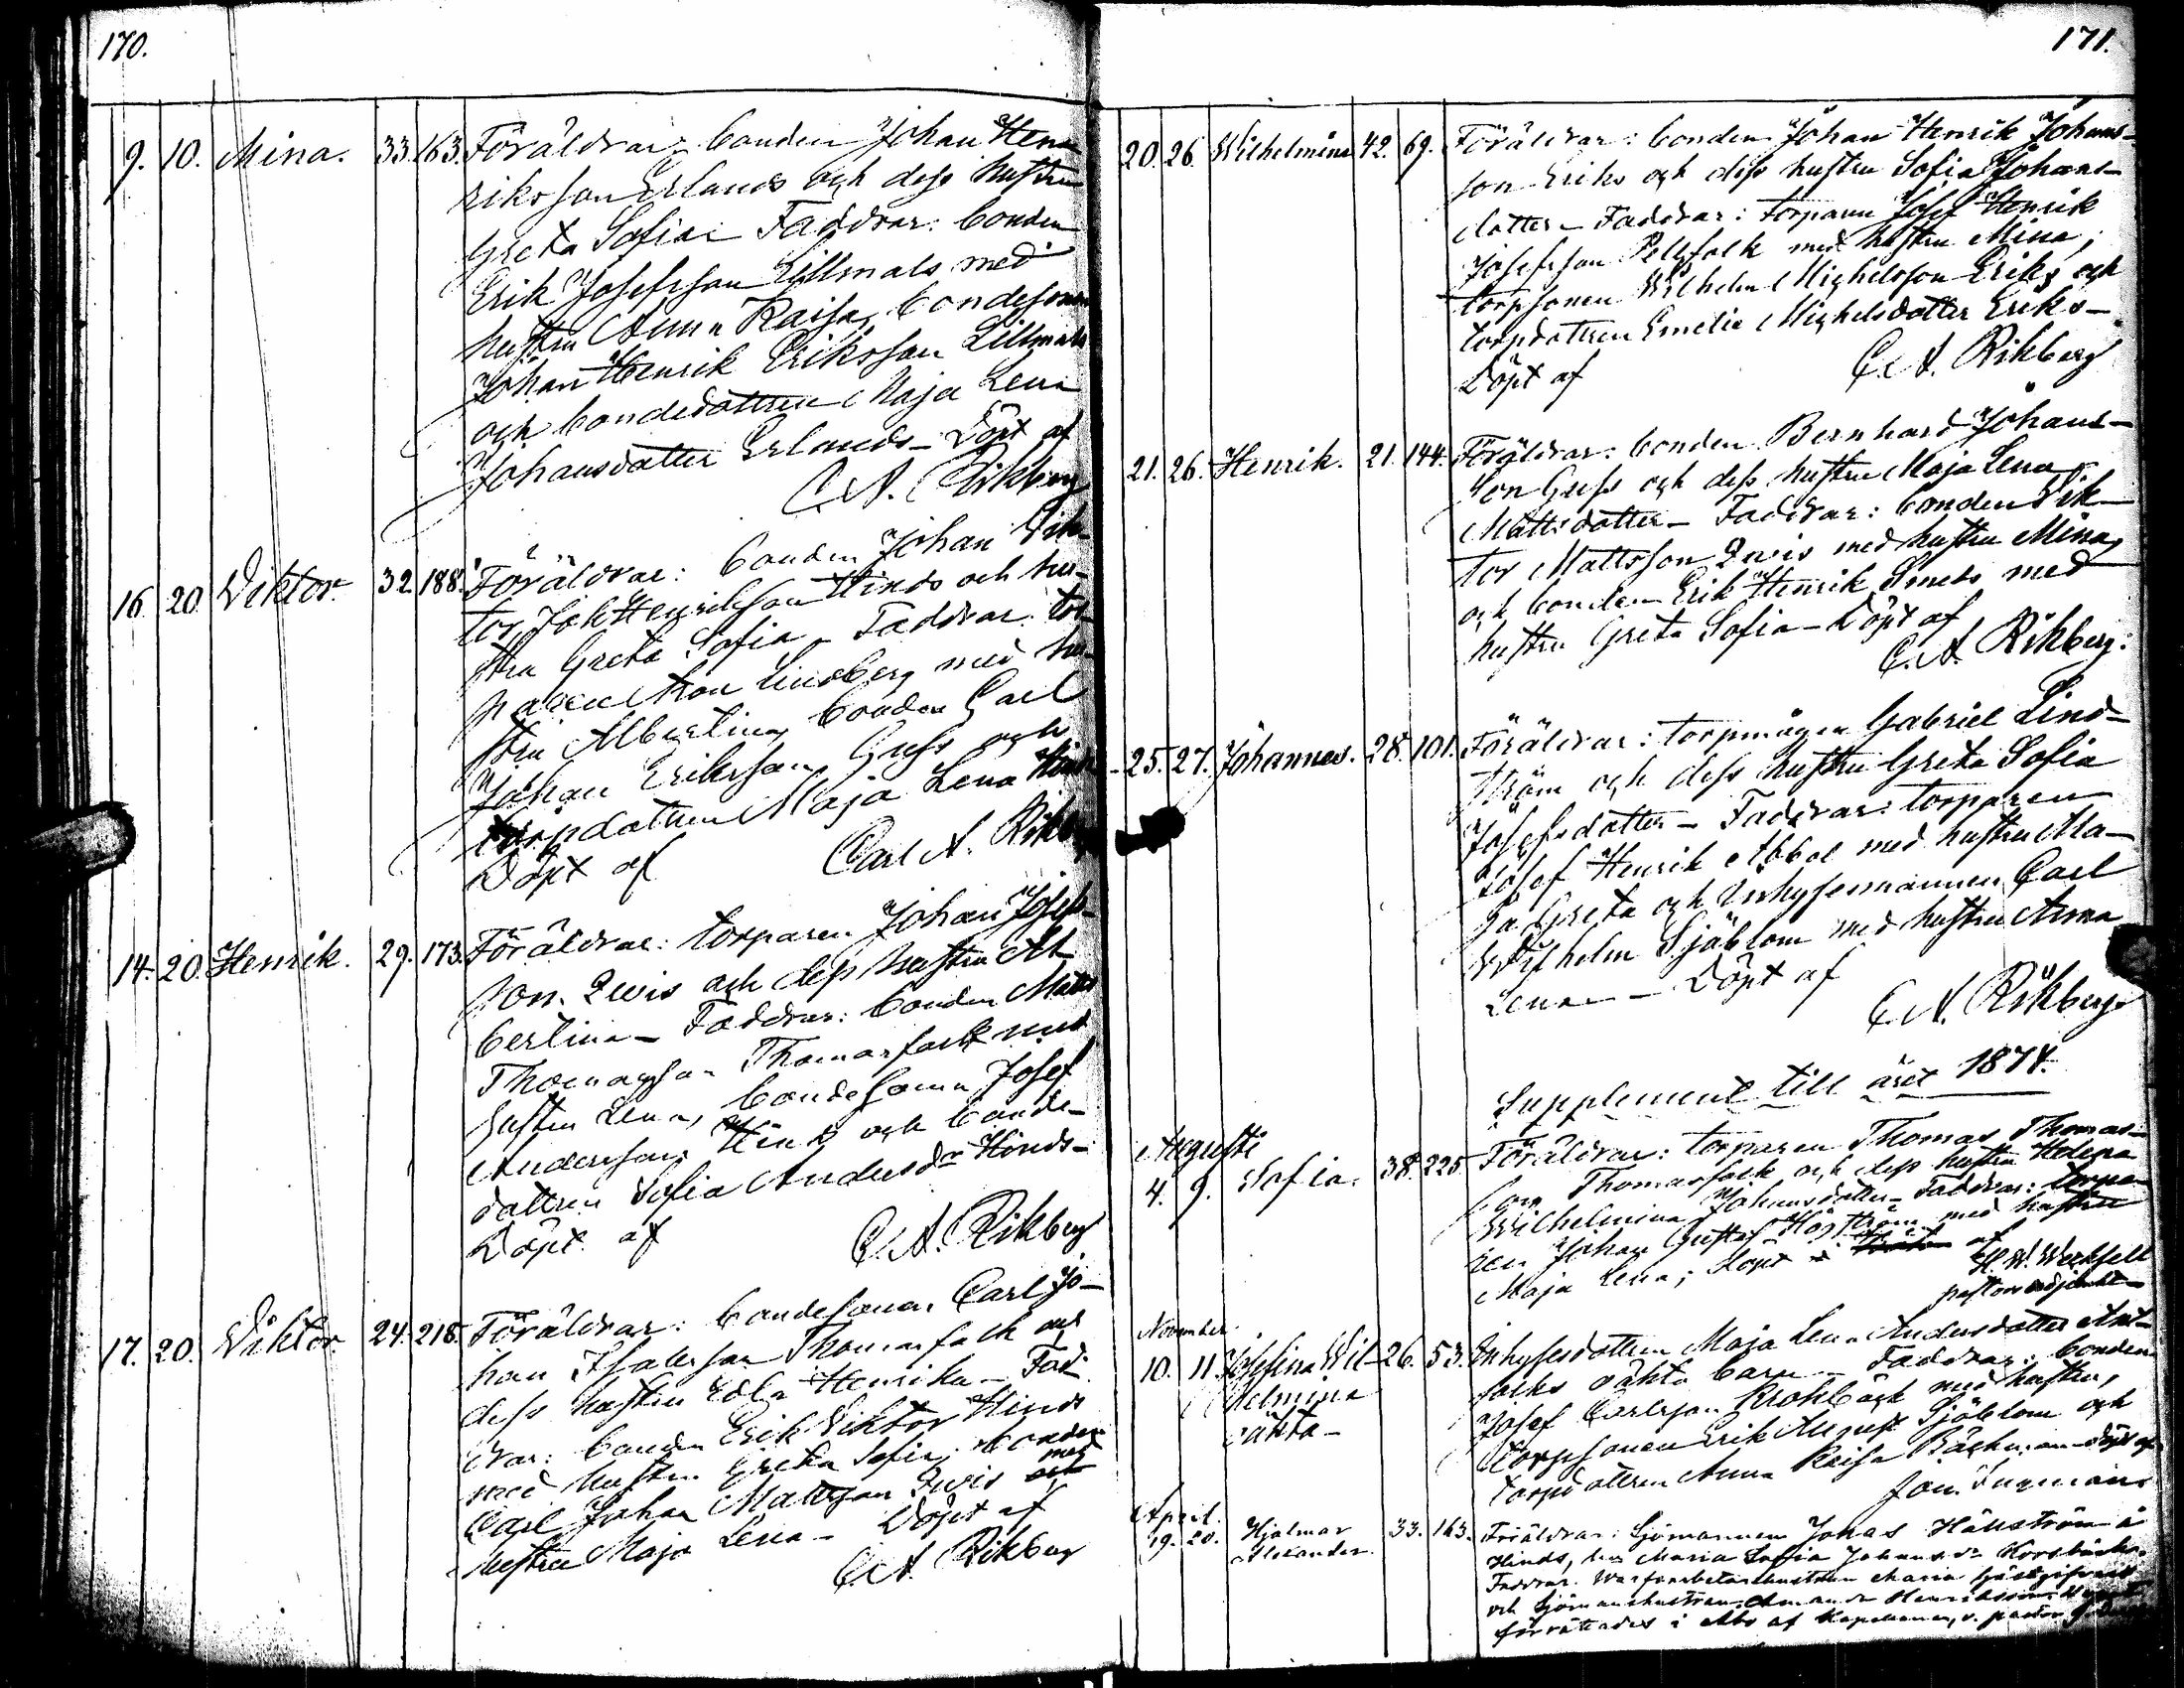 170.
9. 10. Mina. 33. 163. Föräldrar: bonden Johan Hen-
riksson Erlands och dess hustru
Greta Sofia. Faddrar: bonden
Erik Josefsson Lillmats med
hustru Anna Kaisa, bondesonen
Johan Henrik Eriksson Lillmats
och bondedottren Maja Lena
Johansdotter Erlands - Döpt af
C. A. Rikberg
16. 20. Viktor. 32. 188. Föräldrar: bonden Johan Vik-
tor Henriksson Hinds och hu-
stru Greta Sofia - Faddrar: tor-
paren Lindberg med hu-
stru Albertina, bonden Carl
Johan Eriksson Guss och
torpdottren Maja Lena Hinds
Döpt af Carl A. Rikberg
14. 20. Henrik. 29. 173. Föräldrar: torparen Johan Josefs-
son Qwis och dess hustru Al-
bertina - Faddrar: bonden Matts
Thomasson Thomasfolk med
hustru Lena, bondesonen Josef
Andersson Hinds och bonde-
dottren Sofia Andersdr Hinds -
Döpt af C. A. Rikberg
17. 20. Viktor 24. 218. Föräldrar: bondesonen Carl Jo-
han Thomasfolk och
dess hustru Edla Henrika - Fad-
drar: bonden Erik Viktor Hinds
med hustru Greta Sofia, bonden
Carl Johan Mattsson Qwis med
hustru Maja Lena - Döpt af
C. A. Rikberg
171.
20. 26. Wilhelmina 42. 69. Föräldrar: bonden Johan Henrik Johans-
son Eriks och dess hustru Sofia Johans-
dotter - Faddrar: torparen Josef Henrik
Josefsson Pellfolk med hustru Mina;
torpsonen Wilhelm Michelsson Eriks och
torpdottren Emelie Michelsdotter Eriks -
Döpt af C. A. Rikberg
21. 26. Henrik. 21. 144. Föräldrar: bonden Bernhard Johans-
son Guss och dess hustru Maja Lena
Mattsdotter - Faddrar: bonden Vik-
tor Mattsson Qwis med hustru Mina,
och bonden Erik Henrik Smeds med
hustru Greta Sofia - Döpt af
C. A. Rikberg.
25. 27. Johannes. 28. 101. Föräldrar: torpmågen Gabriel Lind-
ström och dess hustru Greta Sofia
Josefsdotter - Faddrar: torparen
Josef Henrik Abbol med hustru Ma-
ja Greta och Inhysesmannen Carl
Wilhelm Sjöblom med hustru Anna
Lena - Döpt af
C. A. Rikberg
Supplement till året 1874.
Augusti
4. 9. Sofia. 38. 225. Föräldrar: torparen Thomas Thomas-
son Thomasfolk och dess hustru Helena
Wilhelmina Johansdotter - Faddrar: torpa-
ren Johan Gustaf Högström med hustru
Maja Lena; Döpt af
pastorsadjunkt -
November.
10. 11. Josefina Wil- 26. 53. Inhysesdottren Maja Lena Andersdotter
helmina folks oäkta barn - Faddrar: bonden
oäkta - Josef Carlsson Krokbäck med hustru,
torpsonen Erik August Sjöblom och
torpdottren Anna Kaisa Bäckman - Döpt af
Jon. Ingman.
April.
19. 20. Hjalmar 33. 163. Föräldrar: Sjömannen Johas Hällström å
Alexander. Hinds, hu. Maria Sofia Johansdr Korsbäcks.
Faddrar. Warfsarbetarehustrun Maria
och Sjömanshustrun Amanda
förrättades i Åbo af Kapellanen, v. pastor